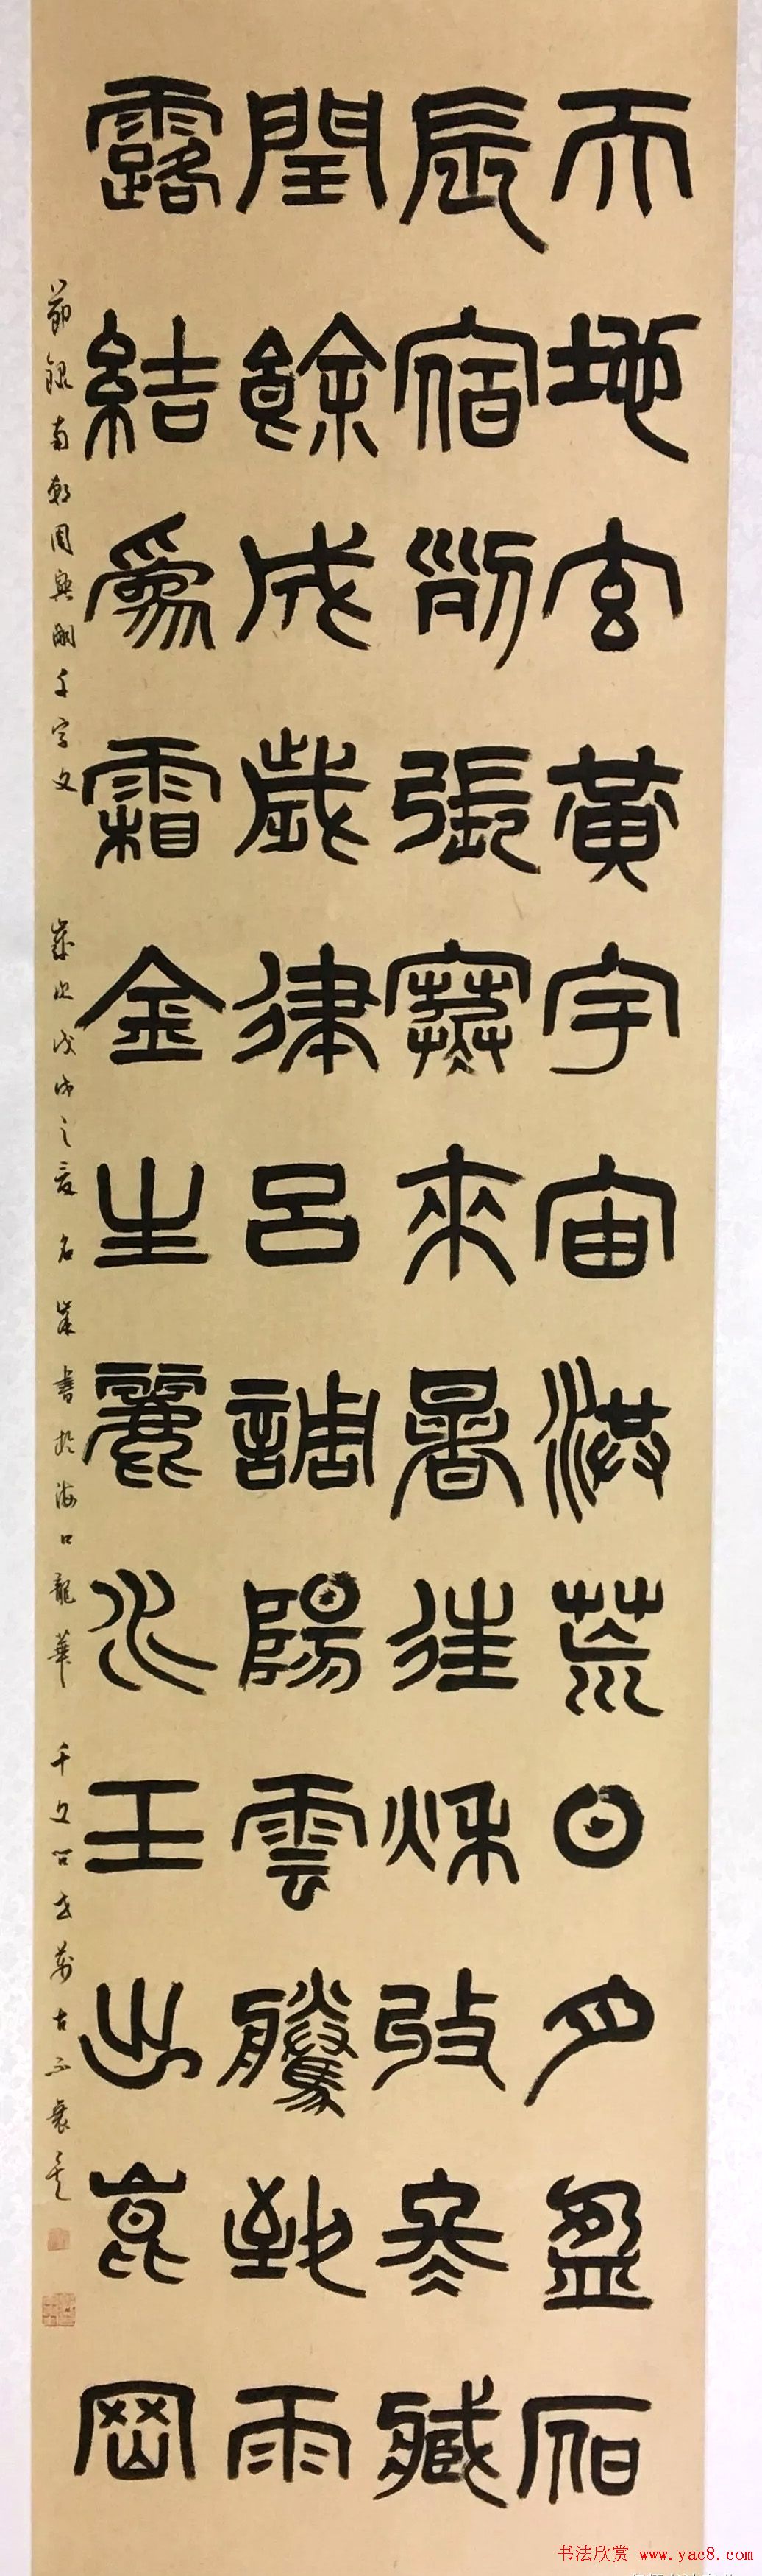 天地玄黃宇宙洪荒日月盈昃
辰宿列張寒來暑往秋收冬藏
閏餘成歲律呂調陽雲騰致雨
露結為霜金生麗水玉出崑岡
節錄南朝周興嗣千字文 歲次戊戌之夏名家書於海口龍華 千文問世萬古不衰矣
书法欣赏 www.yac8.com